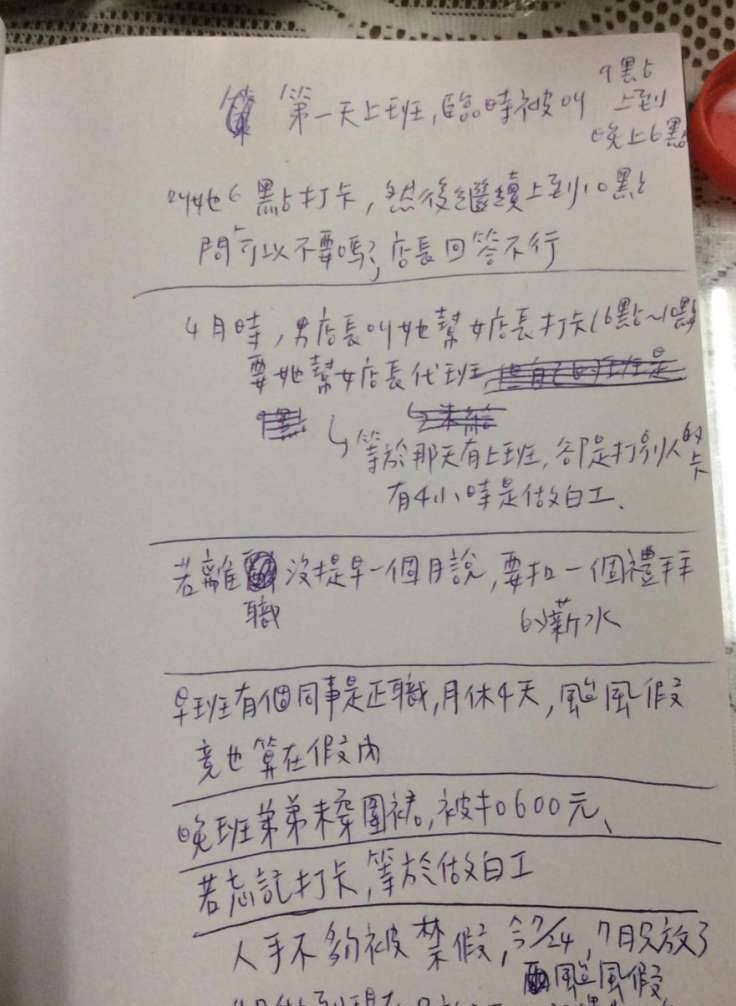 第一天上班,臨時被叫 9點
上到
晚上6點
叫她6點打卡,然後繼續上到10點
問可以不要嗎?店長回答不行
4月時,男店長叫她幫女店長打卡(6點~10點)
要她幫女店長代班
↳等於那天有上班,卻是打別人的卡
有4小時是做白工、
若離職沒提早一個月說,要扣一個禮拜
的薪水
早班有個同事是正職,月休4天,颱風假
竟也算在假內
晚班弟弟未穿圍裙,被扣600元、
若忘記打卡,等於做白工
人手不夠被禁假,今7/24,7月只放了
颱風假